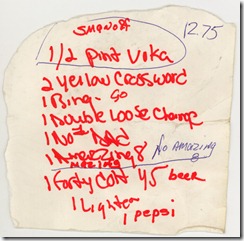 SMRNOFF 12.75
1/2 Pint Voka
2 Yellow Crossword
1 Bing - GO
1 Double Loose Change
1 No 1 Dad
1 Amazing 8 No AMAZING 8
MAZING
1 Forty Colt 45 beer
1 Lighter
1 pepsi